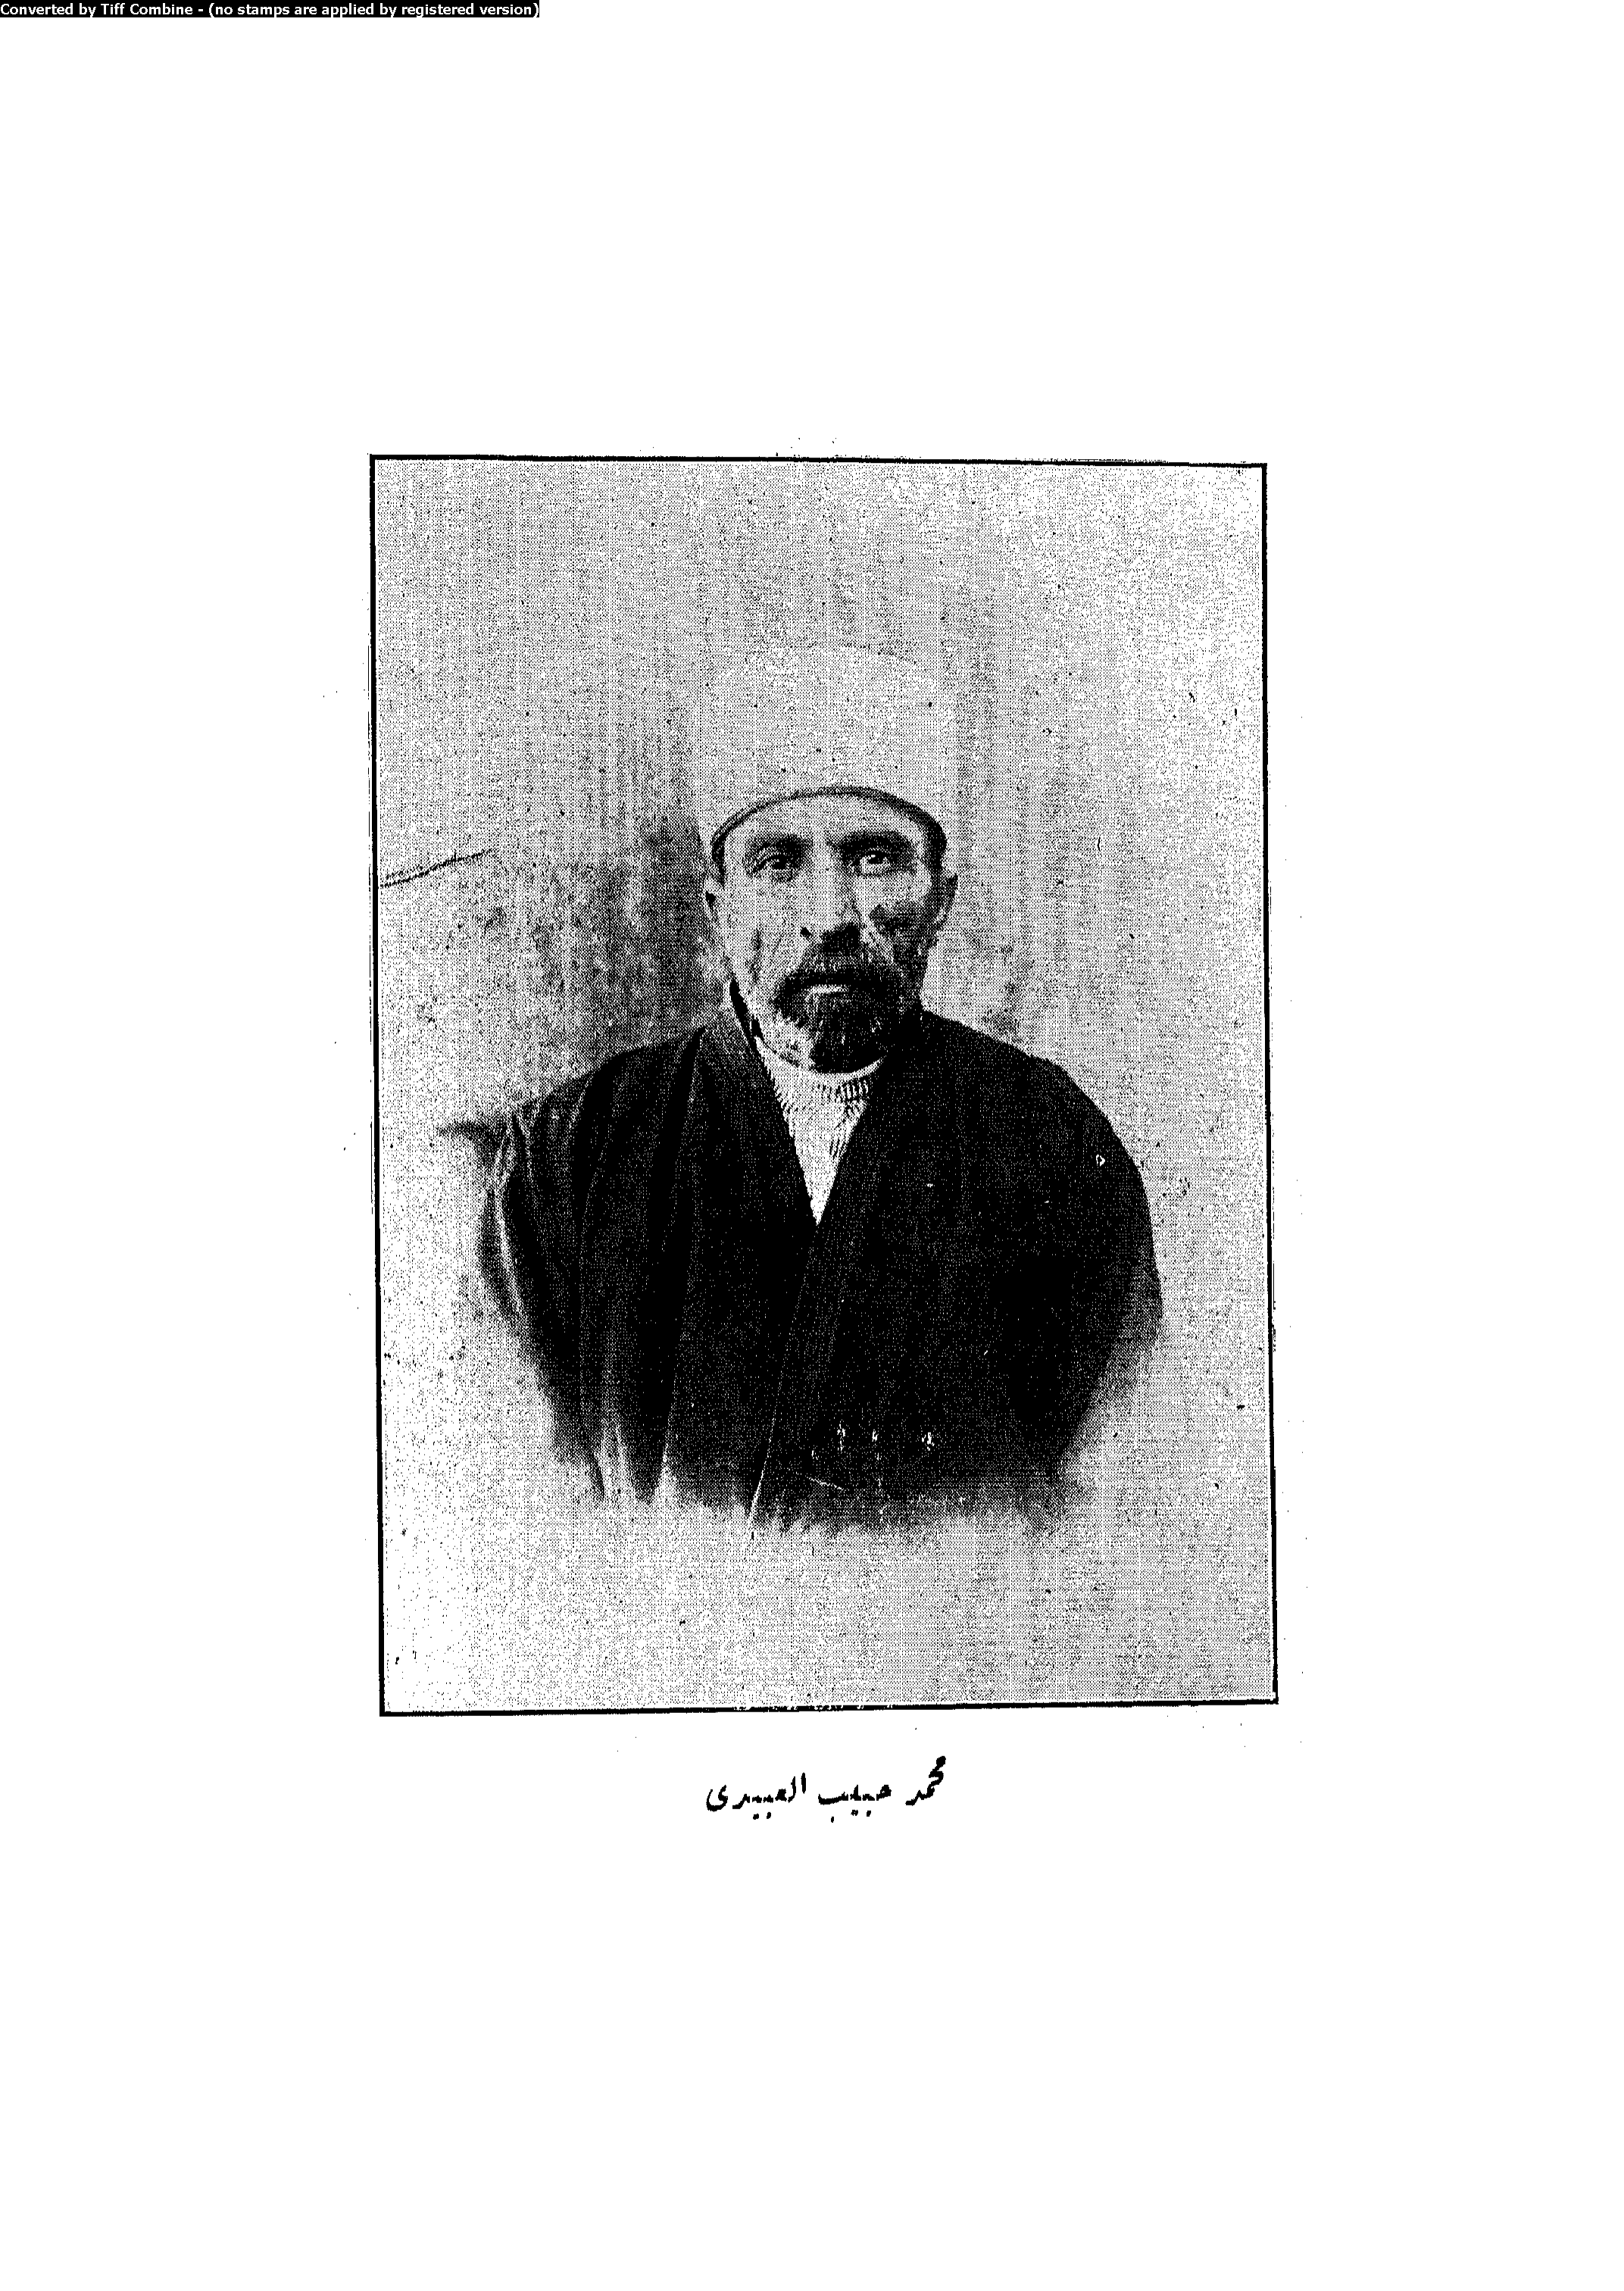 Converted by Tiff Combine - (no stamps are applied by registered version)
محمد حبيب العبيدى